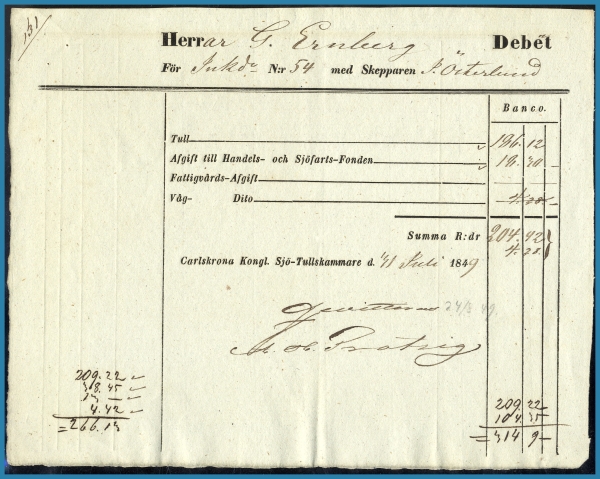 151
Herrar G. Ernberg Debet
För Inkd N:r 54 med Skepparen P. Österlund
Banco.
Tull 186. 12
Afgift till Handels- och Sjöfarts-Fonden 18. 30 –
Fattigvårds-Afgift
Våg- Dito
Summa R:dr 204. 42
4. 28.
Carlskrona Kongl. Sjö-Tullskammare d. 31 Juli 1849
qvitteras
209. 22 –
4. 42 –
= 266. 13
209. 22 –
104. 35 –
= 314 9 –